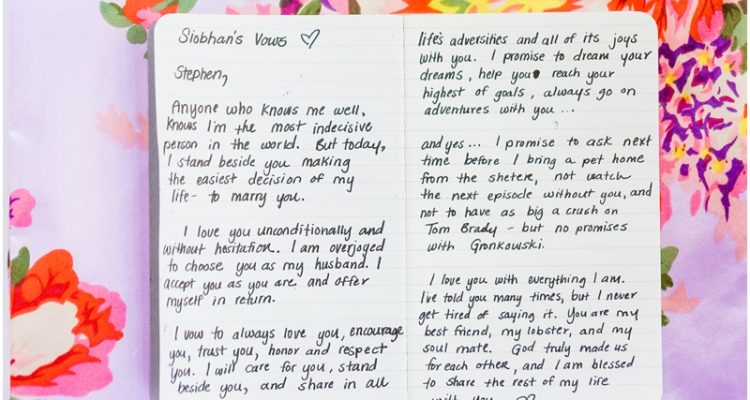 Siobhan's Vows ♡
Stephen,
Anyone who knows me well,
knows I'm the most indecisive
person in the world. But today,
I stand beside you making
the easiest decision of my
life - to marry you.
I love you unconditionally and
without hesitation. I am overjoyed
to choose you as my husband. I
accept you as you are and offer
myself in return.
I vow to always love you, encourage
you, trust you, honor and respect
you. I will care for you, stand
beside you, and share in all
life's adversities and all of its joys
with you. I promise to dream your
dreams, help you reach your
highest of goals, always go on
adventures with you...
and yes... I promise to ask next
time before I bring a pet home
from the sheltere, not watch
the next episode without you, and
not to have as big a crush on
Tom Brady - but no promises
with Gronkowski.
I love you with everything I am.
I've told you many times, but I never
get tired of saying it. You are my
best friend, my lobster, and my
soul mate. God truly made us
for each other, and I am blessed
to share the rest of my life
with you. ♡